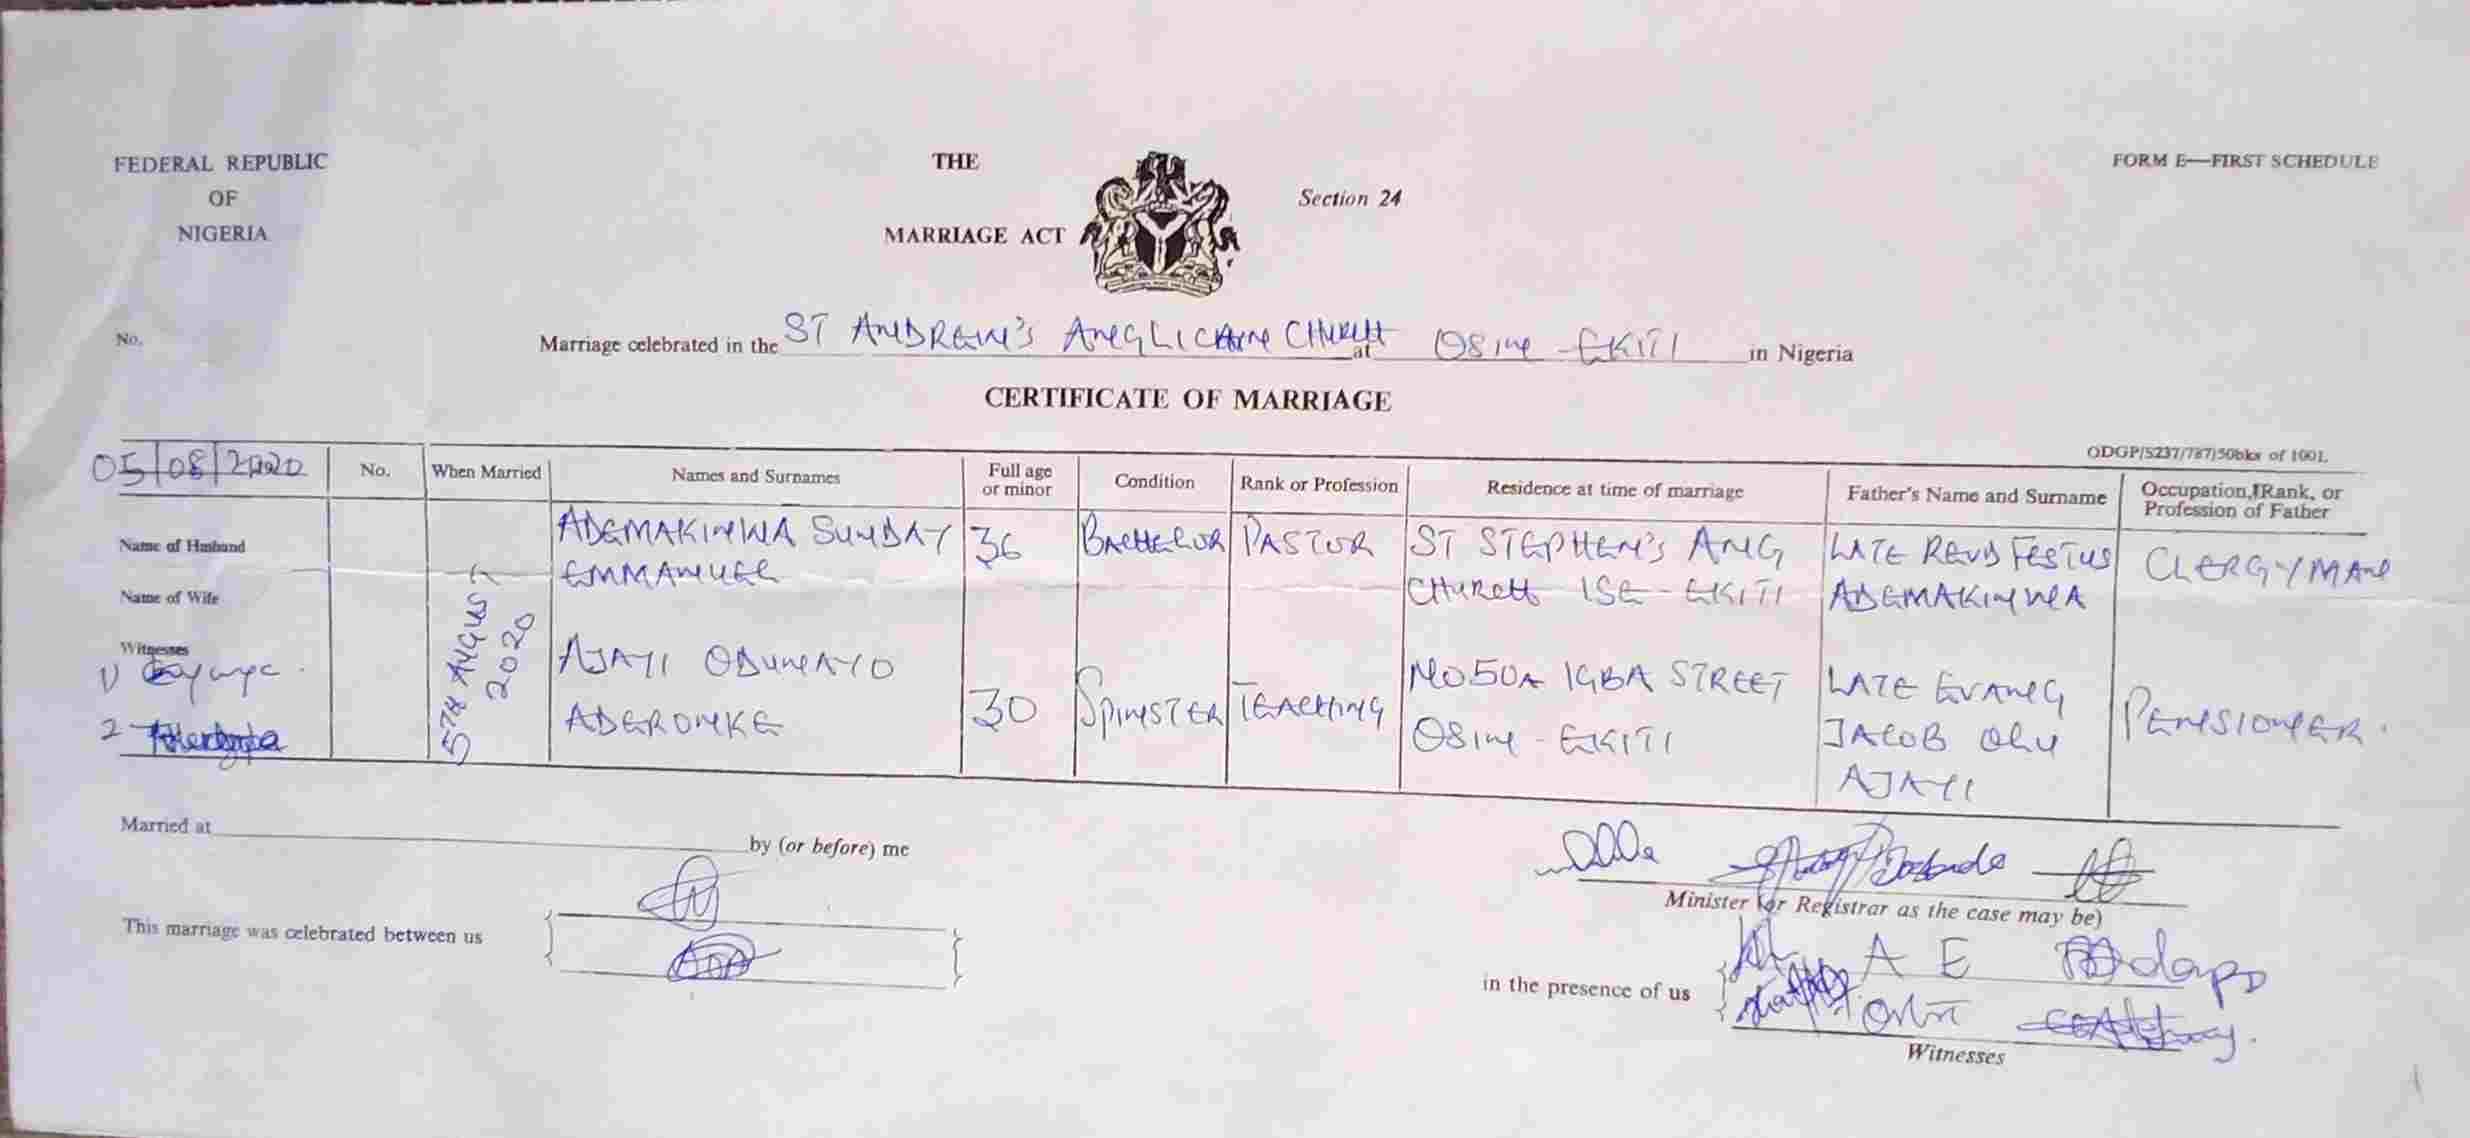 FEDERAL REPUBLIC
OF
NIGERIA
THE
MARRIAGE ACT
Section 24
FORM E—FIRST SCHEDULE
No.
Marriage celebrated in the ST ANDREW'S ANGLICAN CHURCH at OSIN - EKITI in Nigeria
CERTIFICATE OF MARRIAGE
ODGP/S237/787/50bks of 100L
05/08/2020
No.
When Married
Names and Surnames
Full age
or minor
Condition
Rank or Profession
Residence at time of marriage
Father's Name and Surname
Occupation, Rank, or
Profession of Father
Name of Husband
5TH AUGUST
2020
ADEMAKINWA SUNDAY
EMMANUEL
36
BACHELOR
PASTOR
ST STEPHEN'S ANG
CHURCH ISE - EKITI
LATE REVD FESTUS
ADEMAKINWA
CLERGYMAN
Name of Wife
AJAYI ODUNAYO
ADERONKE
30
SPINSTER
TEACHING
NO 50A IGBA STREET
OSIN - EKITI
LATE EVANG
JACOB OLU
AJAYI
PENSIONER.
Witnesses
1)
2
Married at by (or before) me
Minister (or Registrar as the case may be)
This marriage was celebrated between us
in the presence of us
A E
Witnesses